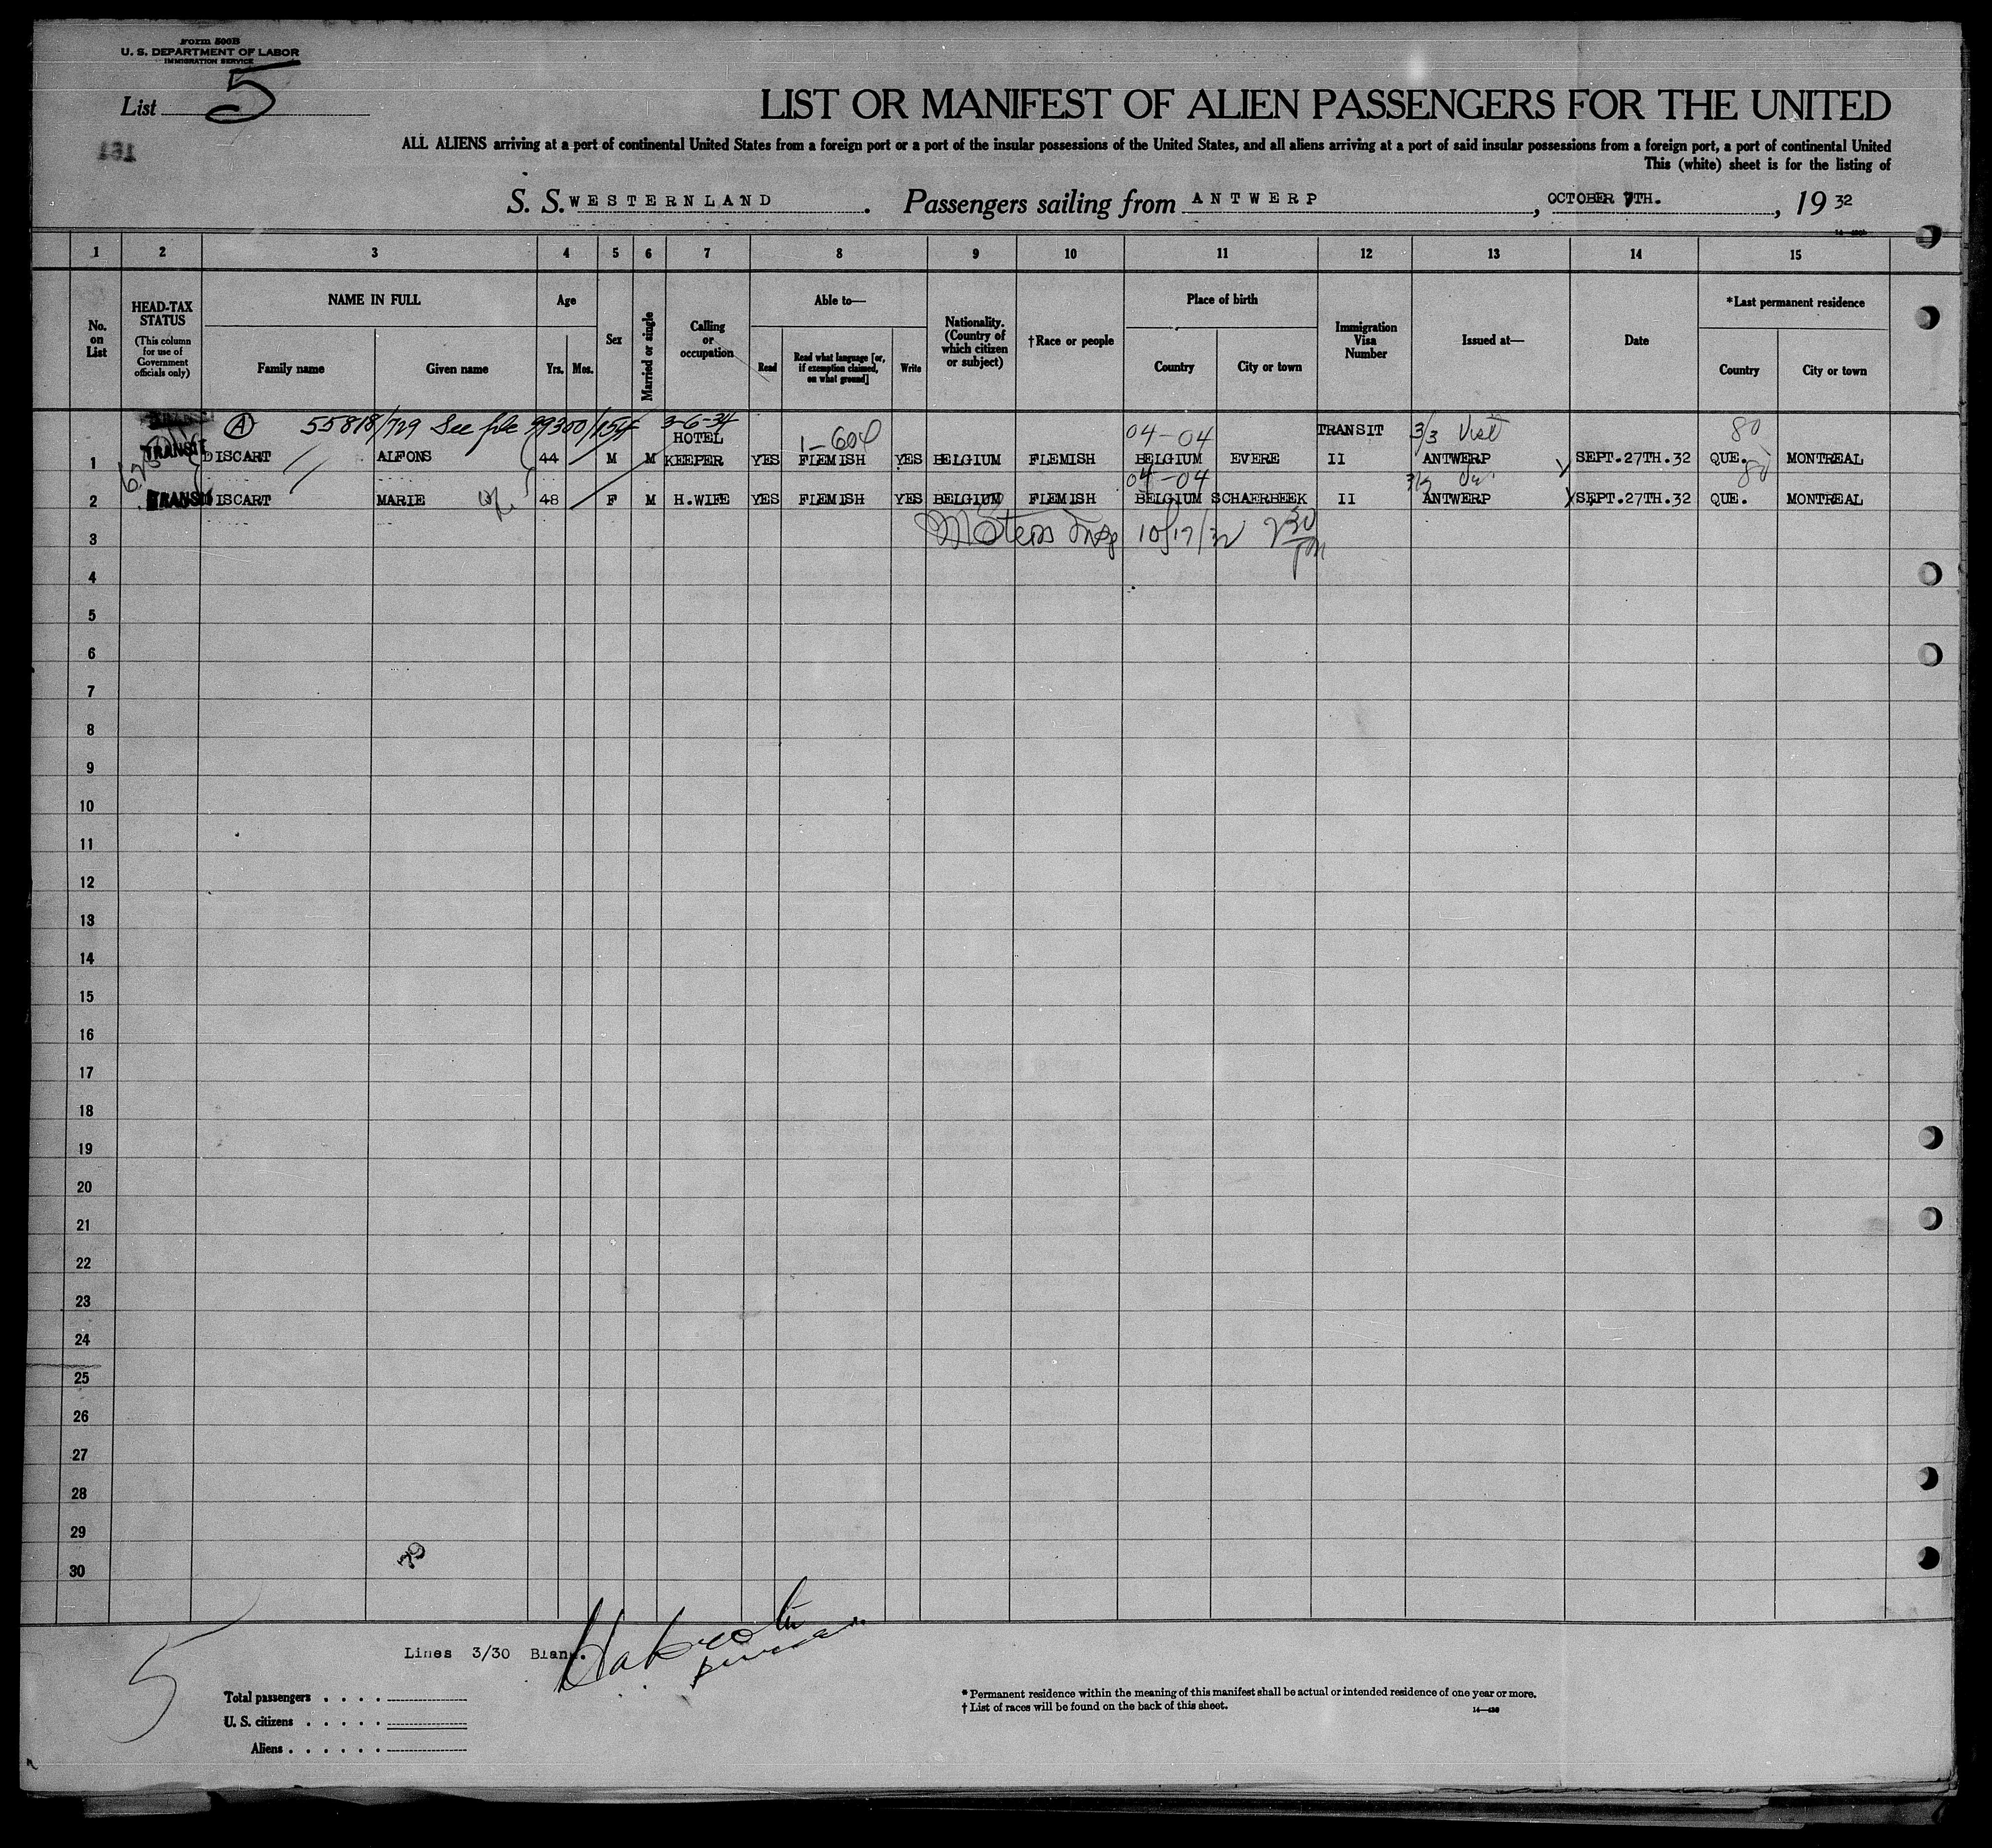 Form 500B
U. S. DEPARTMENT OF LABOR
IMMIGRATION SERVICE
List 5
151
LIST OR MANIFEST OF ALIEN PASSENGERS FOR THE UNITED
ALL ALIENS arriving at a port of continental United States from a foreign port or a port of the insular possessions of the United States, and all aliens arriving at a port of said insular possessions from a foreign port, a port of continental United
This (white) sheet is for the listing of
S. S. WESTERNLAND. Passengers sailing from ANTWERP, OCTOBER 7TH., 19 32
1 2 3 4 5 6 7 8 9 10 11 12 13 14 15
No. on List
HEAD-TAX STATUS
(This column for use of Government officials only)
NAME IN FULL
Family name Given name
Age
Yrs. Mos.
Sex
Married or single
Calling or occupation
Able to—
Read Read what language [or, if exemption claimed, on what ground] Write
Nationality. (Country of which citizen or subject)
†Race or people
Place of birth
Country City or town
Immigration Visa Number
Issued at—
Date
*Last permanent residence
Country City or town
A 55818/729 See file 99300/154 3-6-34
HOTEL 1-604 04-04 TRANSIT 3/3 Visit 80
1 TRANSIT DISCART ALFONS 44 M M KEEPER YES FLEMISH YES BELGIUM FLEMISH BELGIUM EVERE II ANTWERP SEPT.27TH.32 QUE. MONTREAL
04-04 80
2 TRANSIT DISCART MARIE 48 F M H.WIFE YES FLEMISH YES BELGIUM FLEMISH BELGIUM SCHAERBEEK II ANTWERP SEPT.27TH.32 QUE. MONTREAL
3 10/17/32 2 30 pm
4
5
6
7
8
9
10
11
12
13
14
15
16
17
18
19
20
21
22
23
24
25
26
27
28
29
30
Lines 3/30 Blank.
5
Total passengers
U. S. citizens
Aliens
* Permanent residence within the meaning of this manifest shall be actual or intended residence of one year or more.
† List of races will be found on the back of this sheet.